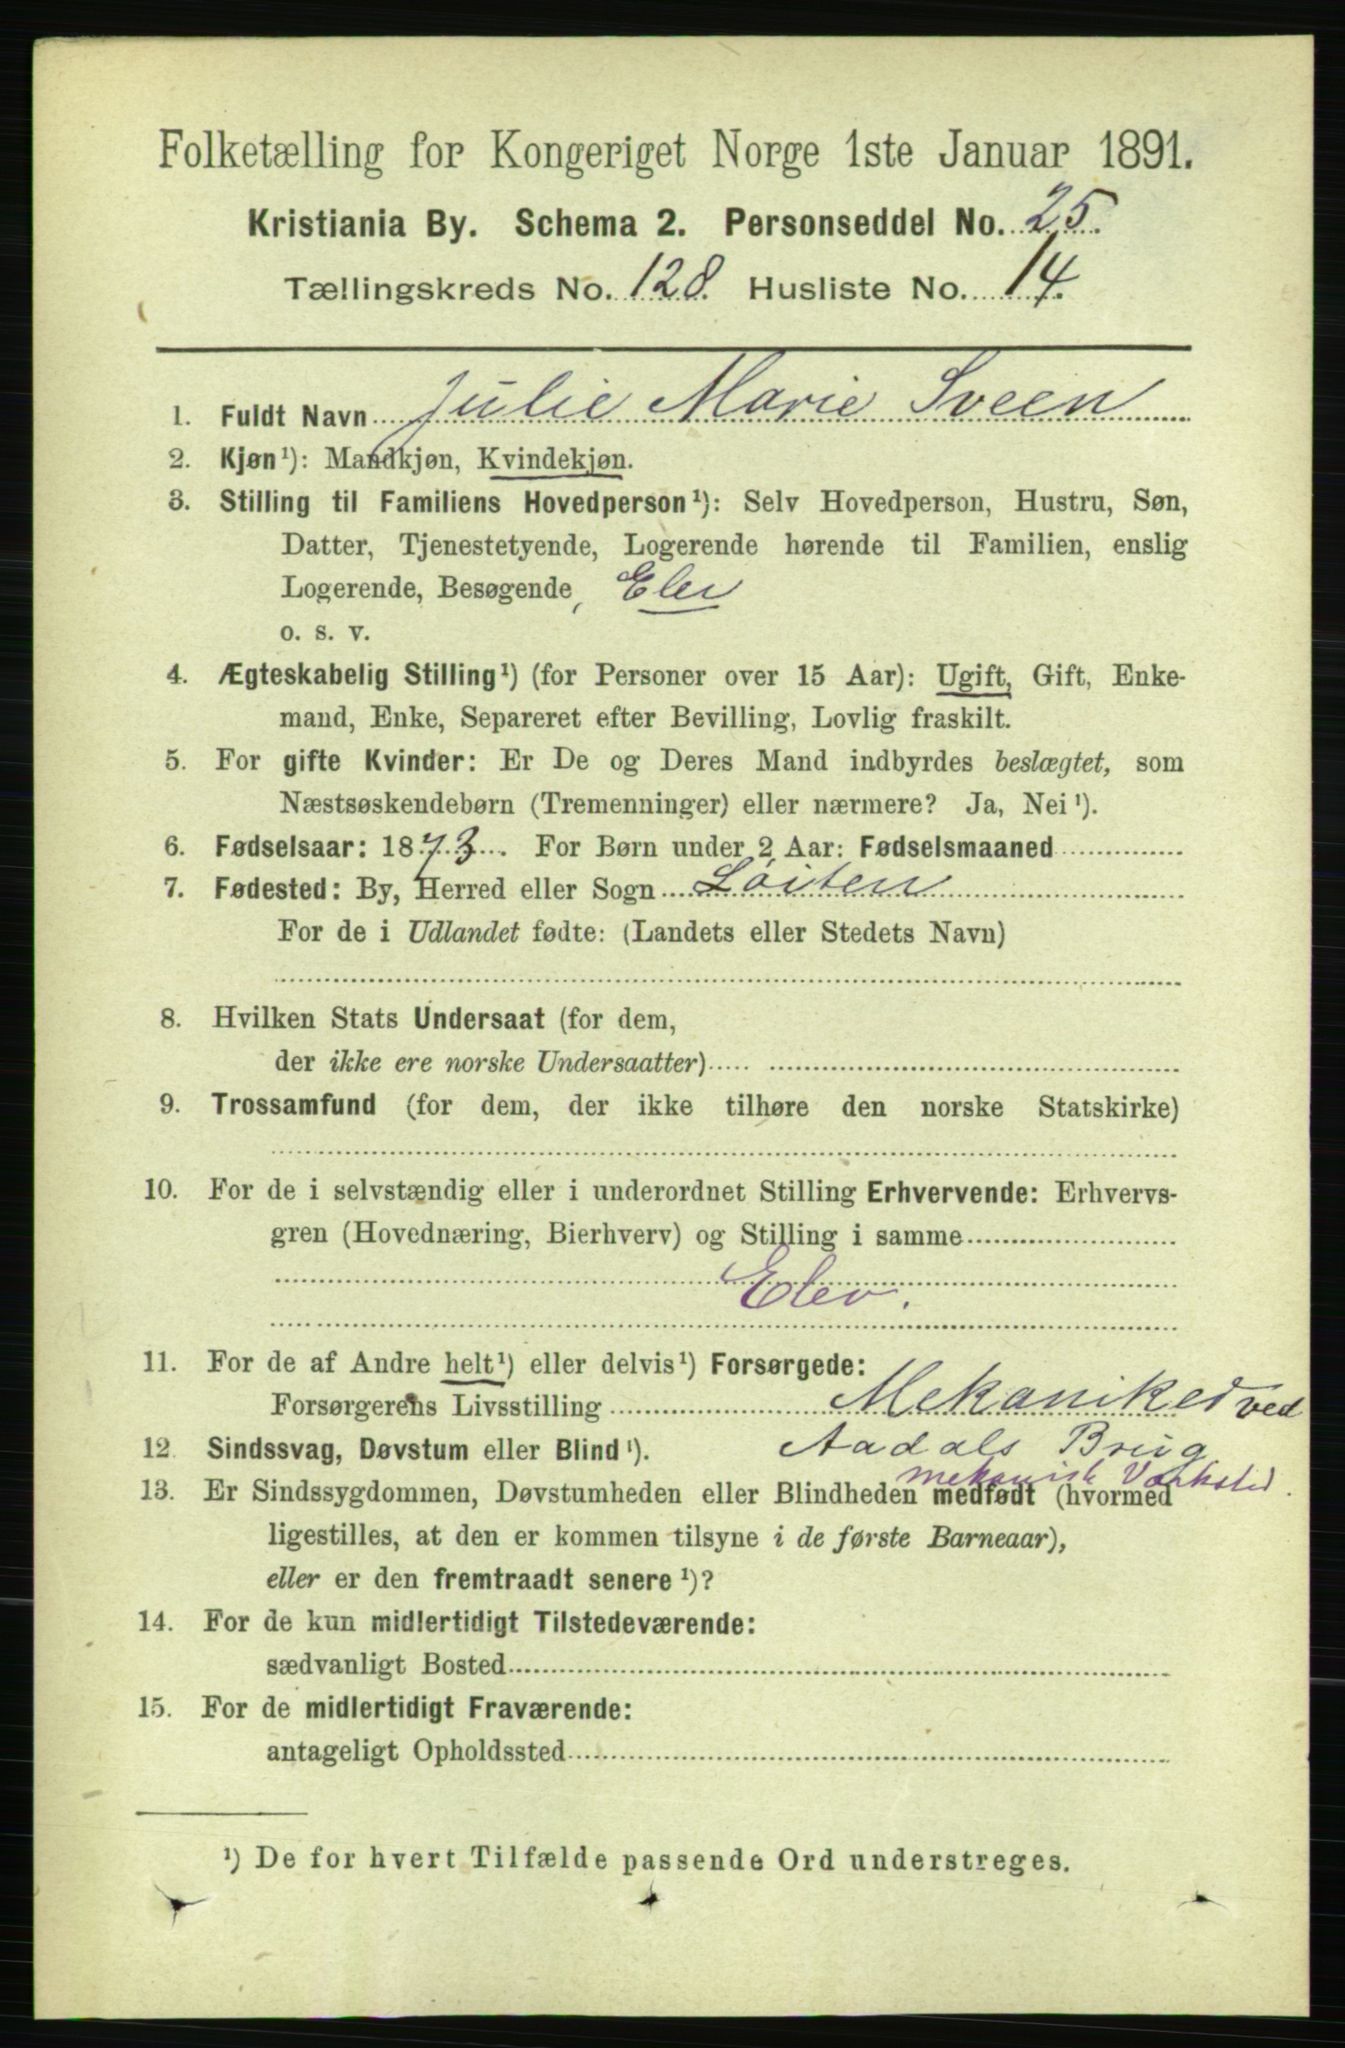 Folketælling for Kongeriget Norge 1ste Januar 1891.
Kristiania By. Schema 2. Personseddel No. 25.
Tællingskreds No. 128. Husliste No. 14.
1. Fuldt Navn Julie Marie Sveen
2. Kjøn ¹): Mandkjøn, Kvindekjøn.
3. Stilling til Familiens Hovedperson ¹): Selv Hovedperson, Hustru, Søn,
Datter, Tjenestetyende, Logerende hørende til Familien, enslig
Logerende, Besøgende, Elev
o. s. v.
4. Ægteskabelig Stilling ¹) (for Personer over 15 Aar): Ugift, Gift, Enke-
mand, Enke, Separeret efter Bevilling, Lovlig fraskilt.
5. For gifte Kvinder: Er De og Deres Mand indbyrdes beslægtet, som
Næstsøskendebørn (Tremenninger) eller nærmere? Ja, Nei ¹).
6. Fødselsaar: 1873. For Børn under 2 Aar: Fødselsmaaned
7. Fødested: By, Herred eller Sogn Løiten
For de i Udlandet fødte: (Landets eller Stedets Navn)
8. Hvilken Stats Undersaat (for dem,
der ikke ere norske Undersaatter)
9. Trossamfund (for dem, der ikke tilhøre den norske Statskirke)
10. For de i selvstændig eller i underordnet Stilling Erhvervende: Erhvervs-
gren (Hovednæring, Bierhverv) og Stilling i samme
Elev.
11. For de af Andre helt ¹) eller delvis ¹) Forsørgede:
Forsørgerens Livsstilling Mekaniker ved
12. Sindssvag, Døvstum eller Blind ¹). Aadals Brug
mekanisk Værksted.
13. Er Sindssygdommen, Døvstumheden eller Blindheden medfødt (hvormed
ligestilles, at den er kommen tilsyne i de første Barneaar),
eller er den fremtraadt senere ¹)?
14. For de kun midlertidigt Tilstedeværende:
sædvanligt Bosted
15. For de midlertidigt Fraværende:
antageligt Opholdssted
¹) De for hvert Tilfælde passende Ord understreges.